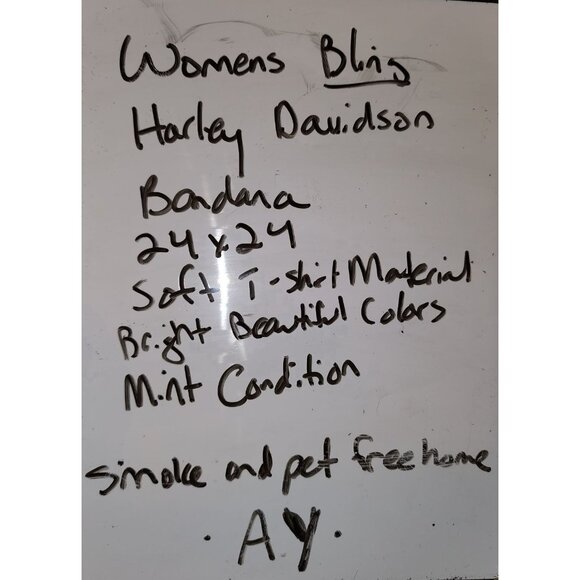 Womens Bling
Harley Davidson
Bandana
24 x 24
Soft T-shirt Material
Bright Beautiful Colors
Mint Condition
smoke and pet free home
· AY ·